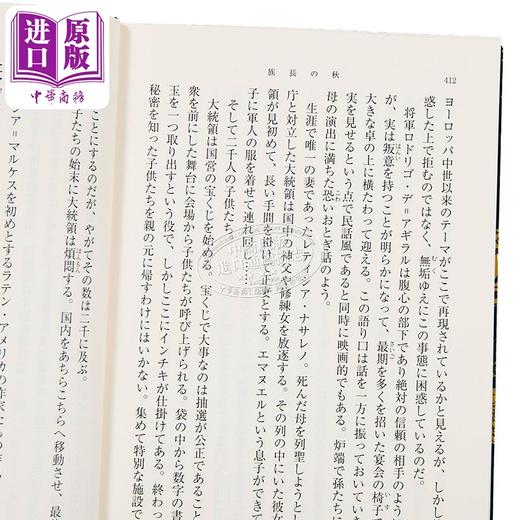 进口
原版
中華商務
412
族長の秋
ヨーロッパ中世以来のテーマがここで再現されているかと見えるが、しかし
惑した上で拒むのではなく、無垢ゆえにこの事態に困惑しているのだ。
将軍ロドリゴ・デ=アギラルは腹心の部下であり絶対の信頼の相手のよう
が、実は叛意を持つことが明らかになって、最期を多くを招いた宴会の椅子で
大きな卓の上に横たわって迎える。この語り口は話を一方に振っておいていき
実を見せるという点で民話風であると同時に映画的でもある。炉端で孫たちに
母の演出に満ちた恐いおとぎ話のよう。
生涯で唯一の妻であったレティシア・ナサレノ。死んだ母を列聖しようとし
庁と対立した大統領は国中の神父や修練女を放逐する。その列の中にいた彼女
領が見初めて、長い手間を掛けて正妻とする。エマヌエルという息子ができて
子に軍人の服を着せて連れ回
そして二千人の子供たち。
大統領は国営の宝くじを始める。宝くじで大事なのは抽選が公正であること
衆を前にした舞台に会場から子供たちが呼び上げられる。袋の中から数字の書
玉を一つ取り出すという役で、しかしここにインチキが仕掛けてある。終わっ
秘密を知った子供たちを親の元に帰すわけにはいかない。集めて特別な施設で
ことにするのだが、やがてその数は二千に及ぶ。
子たちの始末に大統領は煩悶する。国内をあちらこちらへ移動させ、最
シア=マルケスを初めとするラテン・アメリカの作家